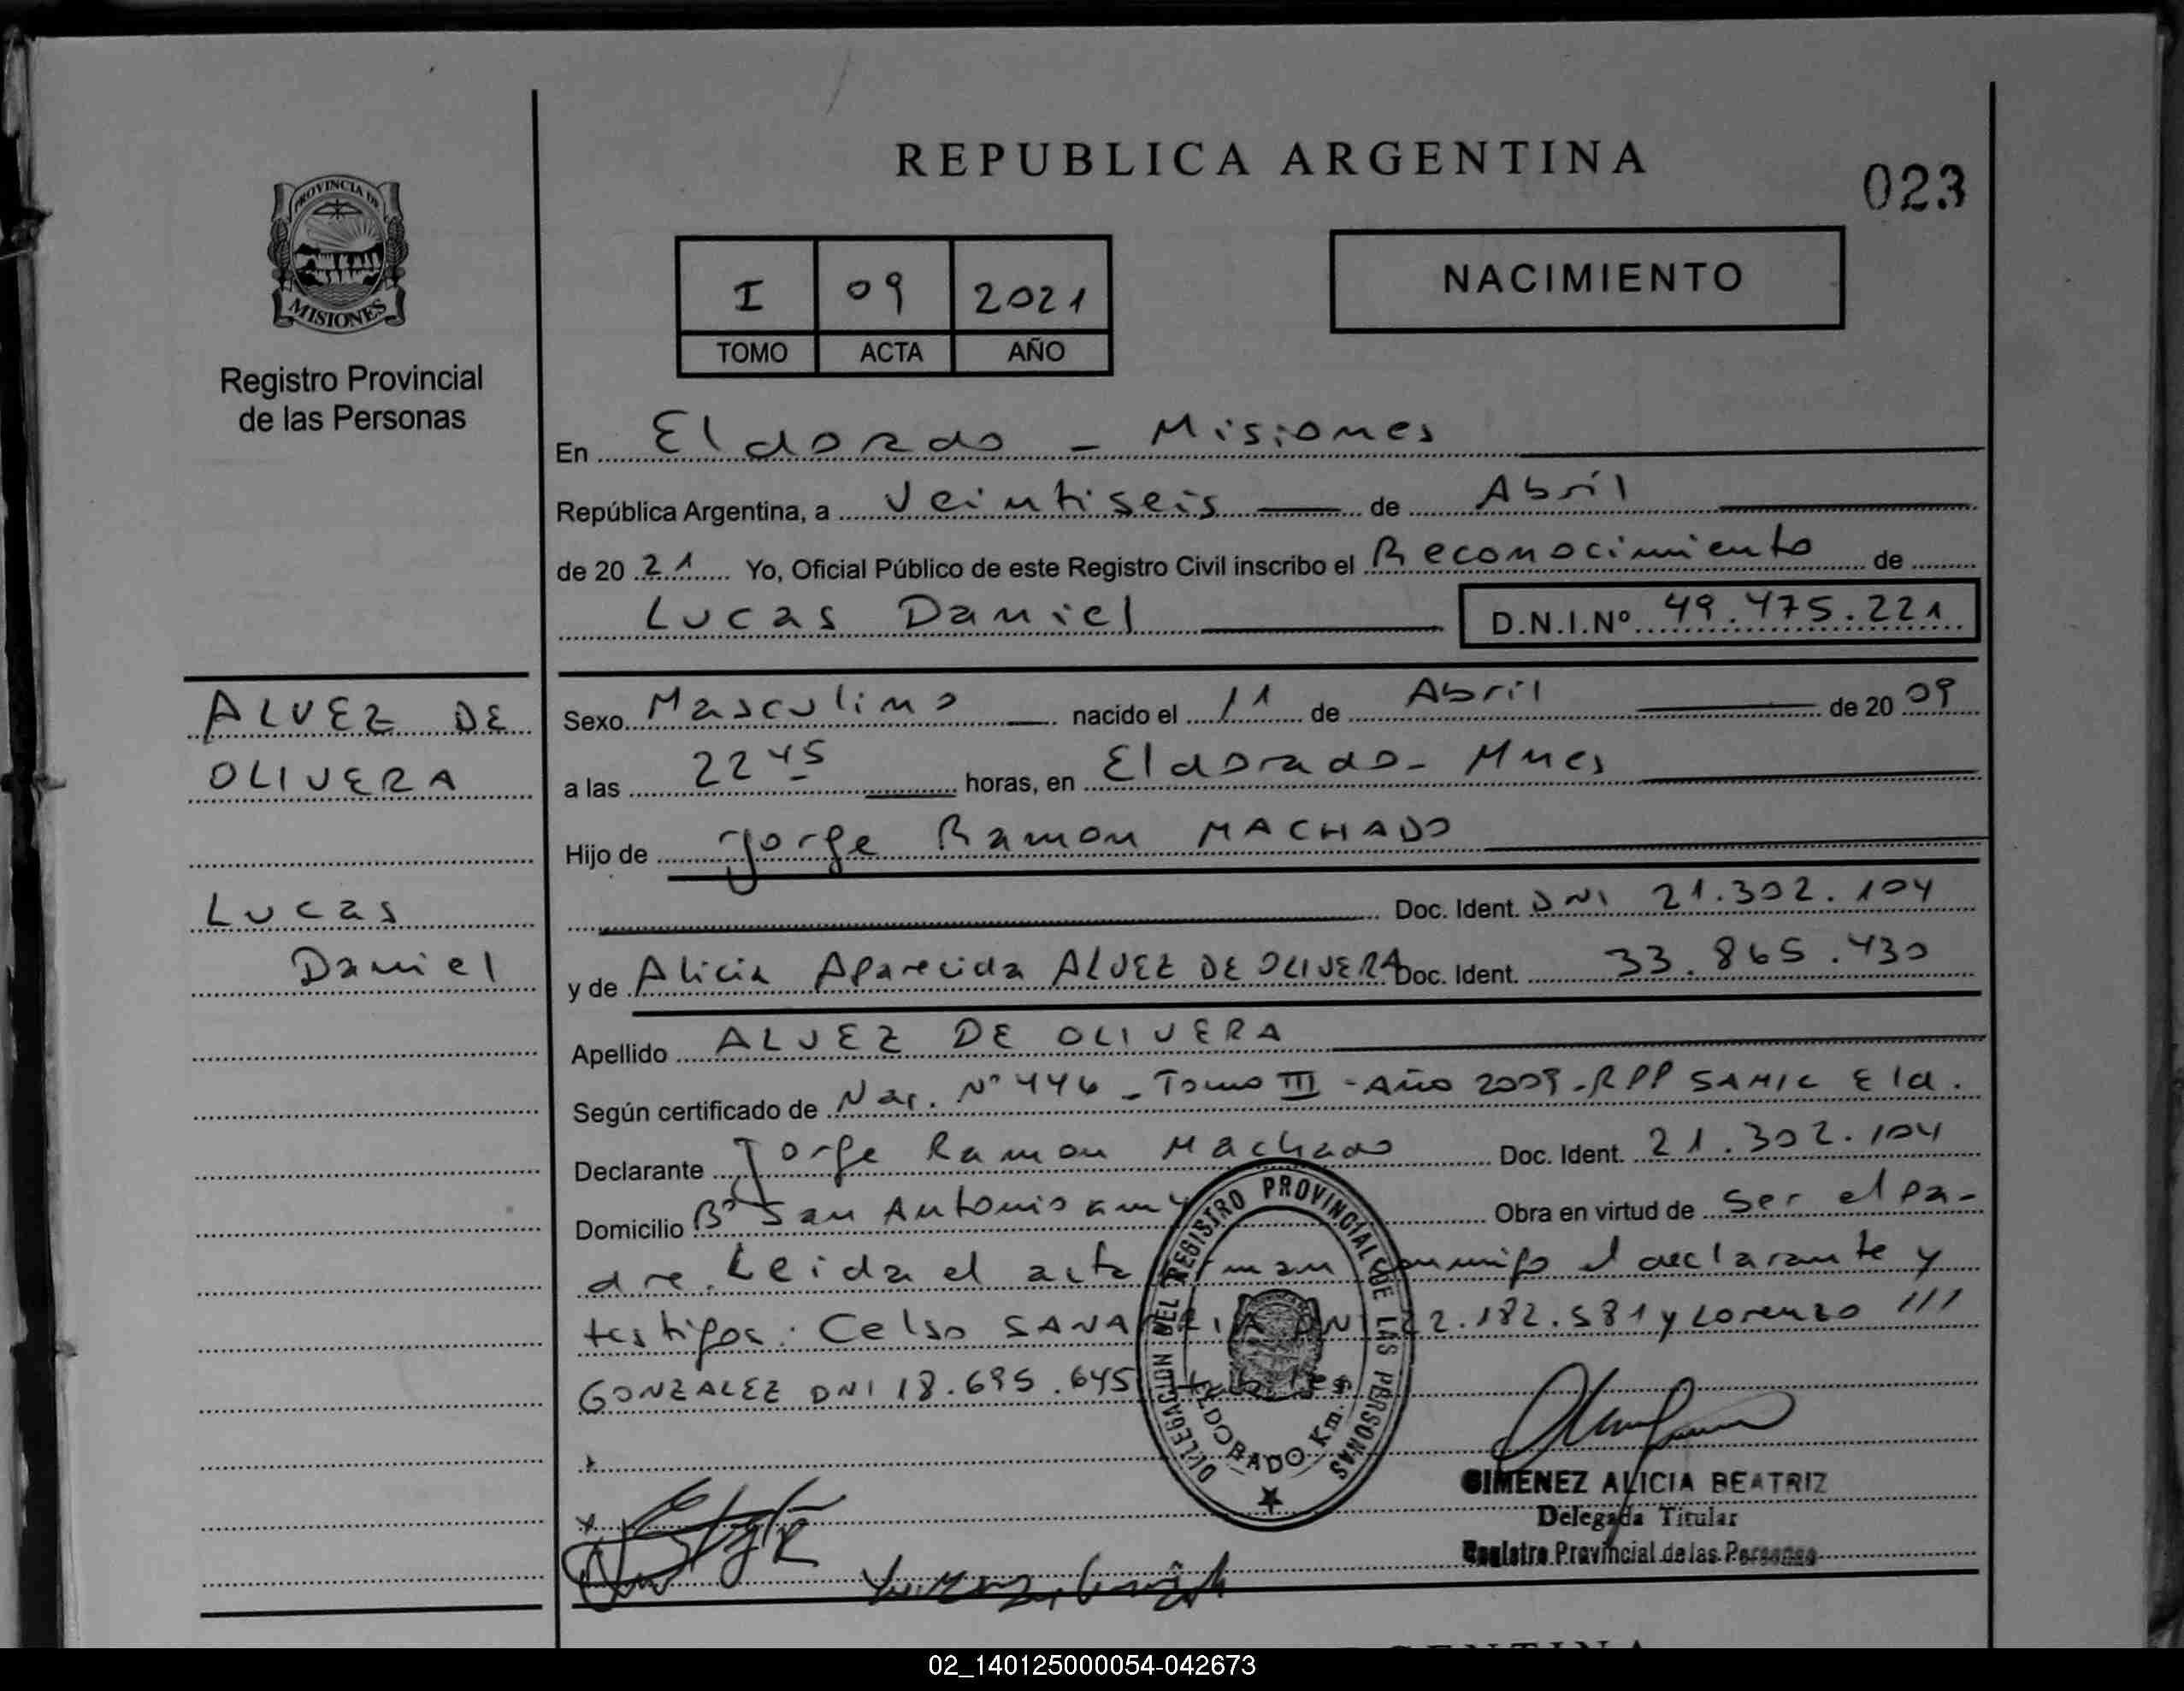 REPUBLICA ARGENTINA
023
PROVINCIA DE
MISIONES
Registro Provincial
de las Personas
I 09 2021
TOMO ACTA AÑO
NACIMIENTO
En Eldorado - Misiones
República Argentina, a Veintiseis de Abril
de 20 21 Yo, Oficial Público de este Registro Civil inscribo el Reconocimiento de
Lucas Daniel D.N.I.Nº 49.475.221
ALVEZ DE
OLIVERA
Lucas
Daniel
Sexo Masculino nacido el 11 de Abril de 20 09
a las 22 45 horas, en Eldorado - Mnes
Hijo de Jorge Ramon MACHADO
Doc. Ident. DNI 21.302.104
y de Alicia Aparecida ALVEZ DE OLIVERA Doc. Ident. 33.865.430
Apellido ALVEZ DE OLIVERA
Según certificado de Nac. Nº 446 - Tomo III - Año 2009 - RPP SAMIC Eld.
Declarante Jorge Ramon Machado Doc. Ident. 21.302.104
Domicilio Bº San Antonio Km 4 Obra en virtud de Ser el pa-
dre. Leida el acta firman conmigo el declarante y
testigos: Celso SANABRIA DNI 22.182.581 y Lorenzo ///
GONZALEZ DNI 18.695.645
DELEGACION DEL REGISTRO PROVINCIAL DE LAS PERSONAS
ELDORADO Km.
GIMENEZ ALICIA BEATRIZ
Delegada Titular
Registro Provincial de las Personas
02_140125000054-042673